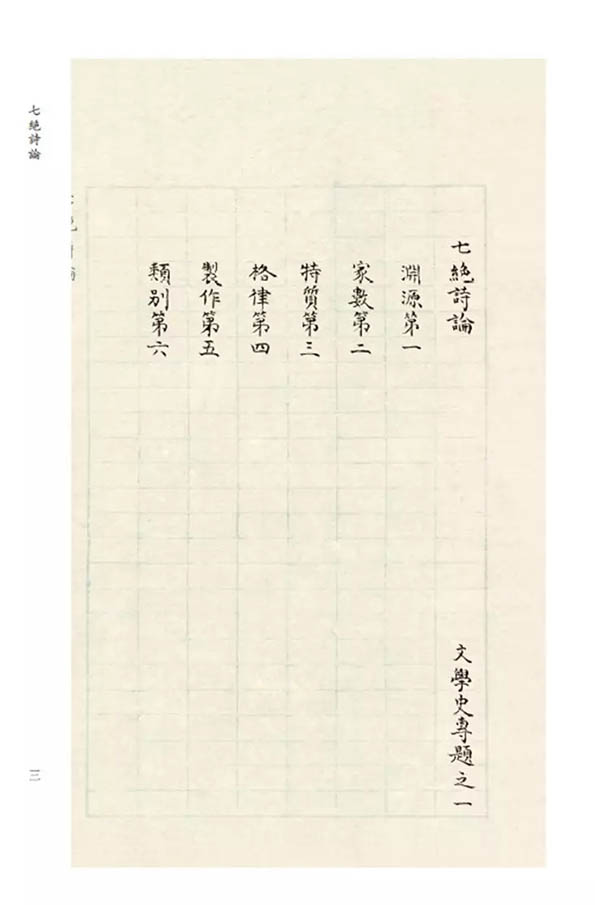 七絶詩論
文學史專題之一
淵源第一
家數第二
特質第三
格律第四
製作第五
類别第六
七絶詩論
三